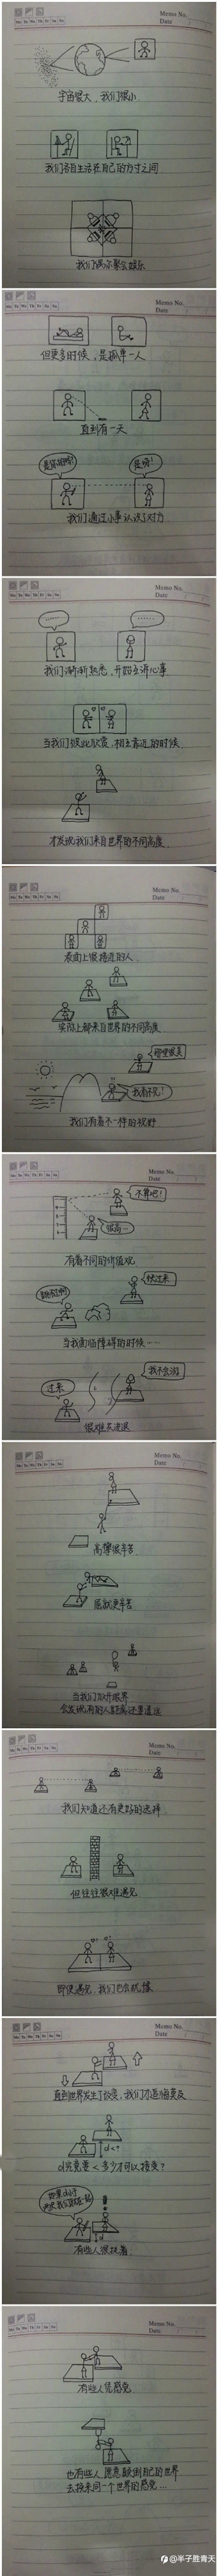 Memo No.
Date
Mo Tu We Th Fr Sa Su
宇宙很大，我们很小
我们各自生活在自己的方寸之间
我们偶尔聚会娱乐
Memo No.
Date
Mo Tu We Th Fr Sa Su
但更多时候，是孤单一人
直到有一天
是你的吗?
是呀!
我们通过小事认识了对方
Memo No.
Date
Mo Tu We Th Fr Sa Su
……
……
我们渐渐熟悉，开始互诉心事
当我们彼此欣赏，相互靠近的时候
才发现我们来自世界的不同高度
Memo No.
Date
Mo Tu We Th Fr Sa Su
表面上很接近的人
实际上都来自世界的不同高度
那里很美
我看不见?
我们有着不一样的视野
Memo No.
Date
Mo Tu We Th Fr Sa Su
不算吧!
很高…
有着不同的价值观
快过来
当我面临障碍的时候……
过来
我不会游
很难共进退
Memo No.
Date
Mo Tu We Th Fr Sa Su
高攀很辛苦
屈就更辛苦
当我们放开眼界
会发现有的人距离还更遥远
Memo No.
Date
Mo Tu We Th Fr Sa Su
我们知道还有更好的选择
但往往很难遇见
即使遇见，我们也会犹豫
Memo No.
Date
Mo Tu We Th Fr Sa Su
直到世界发生了改变，我们才追悔莫及
d<?
d究竟要<多少才可以接受?
d
有些人很执着
Memo No.
Date
Mo Tu We Th Fr Sa Su
有些人凭感觉
也有些人愿意颠倒自己的世界
去换来同一个世界的感觉…
@半子胜青天